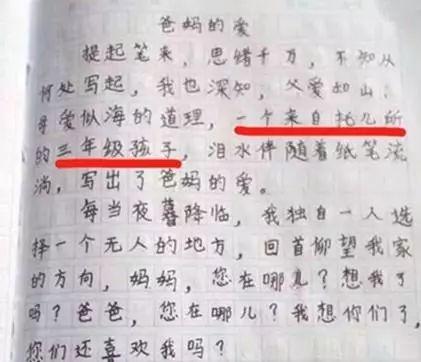 爸妈的爱
提起笔来，思绪千万，不知从
何处写起，我也深知，父爱如山，
母爱似海的道理，一个来自托儿所
的三年级孩子，泪水伴随着纸笔流
淌，写出了爸妈的爱。
每当夜暮降临，我独自一人选
择一个无人的地方，回首仰望我家
的方向，妈妈，您在哪儿？想我了
吗？爸爸，您在哪儿？我想你们了，
你们还喜欢我吗？